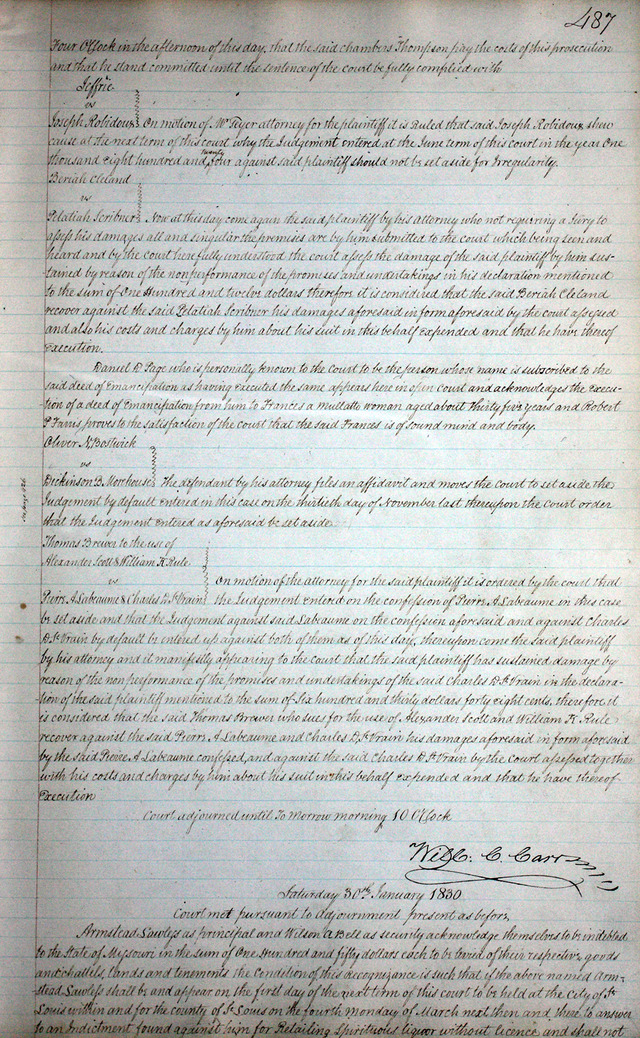 487
Four O'Clock in the afternoon of this day, that the said chambers Thompson pay the costs of this prosecution
and that he stand committed until the sentence of the court be fully complied with
Jeffrie
vs
Joseph Robidoux On motion of Mr Geyer attorney for the plaintiff it is Ruled that said Joseph Robidoux shew
cause at the next term of this court why the Judgement entered at the June term of this court in the year One
thousand eight hundred and twenty four against said plaintiff should not be set aside for Irregularity.
Beriah Cleland
vs
Pelatiah Scribner Now at this day come again the said plaintiff by his attorney who not requiring a Jury to
assess his damages all and singular the premises are by him submitted to the court which being seen and
heard and by the court here fully understood the court assess the damage of the said plaintiff by him sus-
tained by reason of the nonperformance of the promises and undertakings in his declaration mentioned
to the sum of One Hundred and twelve dollars therefore it is considered that the said Beriah Cleland
recover against the said Pelatiah Scribner his damages aforesaid in form aforesaid by the court assessed
and also his costs and charges by him about his suit in this behalf expended and that he have thereof
execution.
Daniel D Page who is personally known to the court to be the person whose name is subscribed to the
said deed of emancipation as having executed the same appears here in open court and acknowledges the execu-
tion of a deed of emancipation from him to Frances a mullatto woman aged about thirty five years and Robert
P Farris proves to the satisfaction of the court that the said Frances is of sound mind and body.
Oliver N. Bostwick
vs
Dickinson B. Morehouse The defendant by his attorney files an affidavit and moves the court to set aside the
Judgement by default entered in this case on the thirtieth day of November last thereupon the court order
that the Judgement entered as aforesaid be set aside
Thomas Brewer to the use of
Alexander Scott & William K. Rule
vs
Pierre A Labeaume & Charles D St Vrain On motion of the attorney for the said plaintiff it is ordered by the court that
the Judgement entered on the confession of Pierre A Labeaume in this case
be set aside and that the Judgement against said Labeaume on the confession aforesaid and against Charles
D St Vrain by default be entered up against both of them as of this day, thereupon come the said plaintiff
by his attorney and it manifestly appearing to the court that the said plaintiff has sustained damage by
reason of the nonperformance of the promises and undertakings of the said Charles D St Vrain in the declara-
tion of the said plaintiff mentioned to the sum of Six hundred and thirty dollars forty eight cents, therefore it
is considered that the said Thomas Brewer who sues for the use of Alexander Scott and William K Rule
recover against the said Pierre A Labeaume and Charles D St Vrain his damages aforesaid in form aforesaid
by the said Pierre A Labeaume confessed, and against the said Charles D St Vrain by the court assessed together
with his costs and charges by him about his suit in this behalf expended and that he have thereof
Execution
Court adjourned until To morrow morning 10 O'Clock
Will. C. Carr
Saturday 30th January 1830
Court met pursuant to adjournment present as before,
Armstead Lawless as principal and Wilson A Bell as security acknowledge themselves to be indebted
to the State of Missouri in the sum of One Hundred and fifty dollars each to be levied of their respective goods
and chattels, lands and tenements the Condition of this Recognizance is such that if the above named Arm-
stead Lawless shall be and appear on the first day of the next term of this court to be held at the City of St
Louis within and for the county of St Louis on the fourth monday of March next then and there to answer
to an Indictment found against him for Retailing Spirituous liquor without licence and shall not